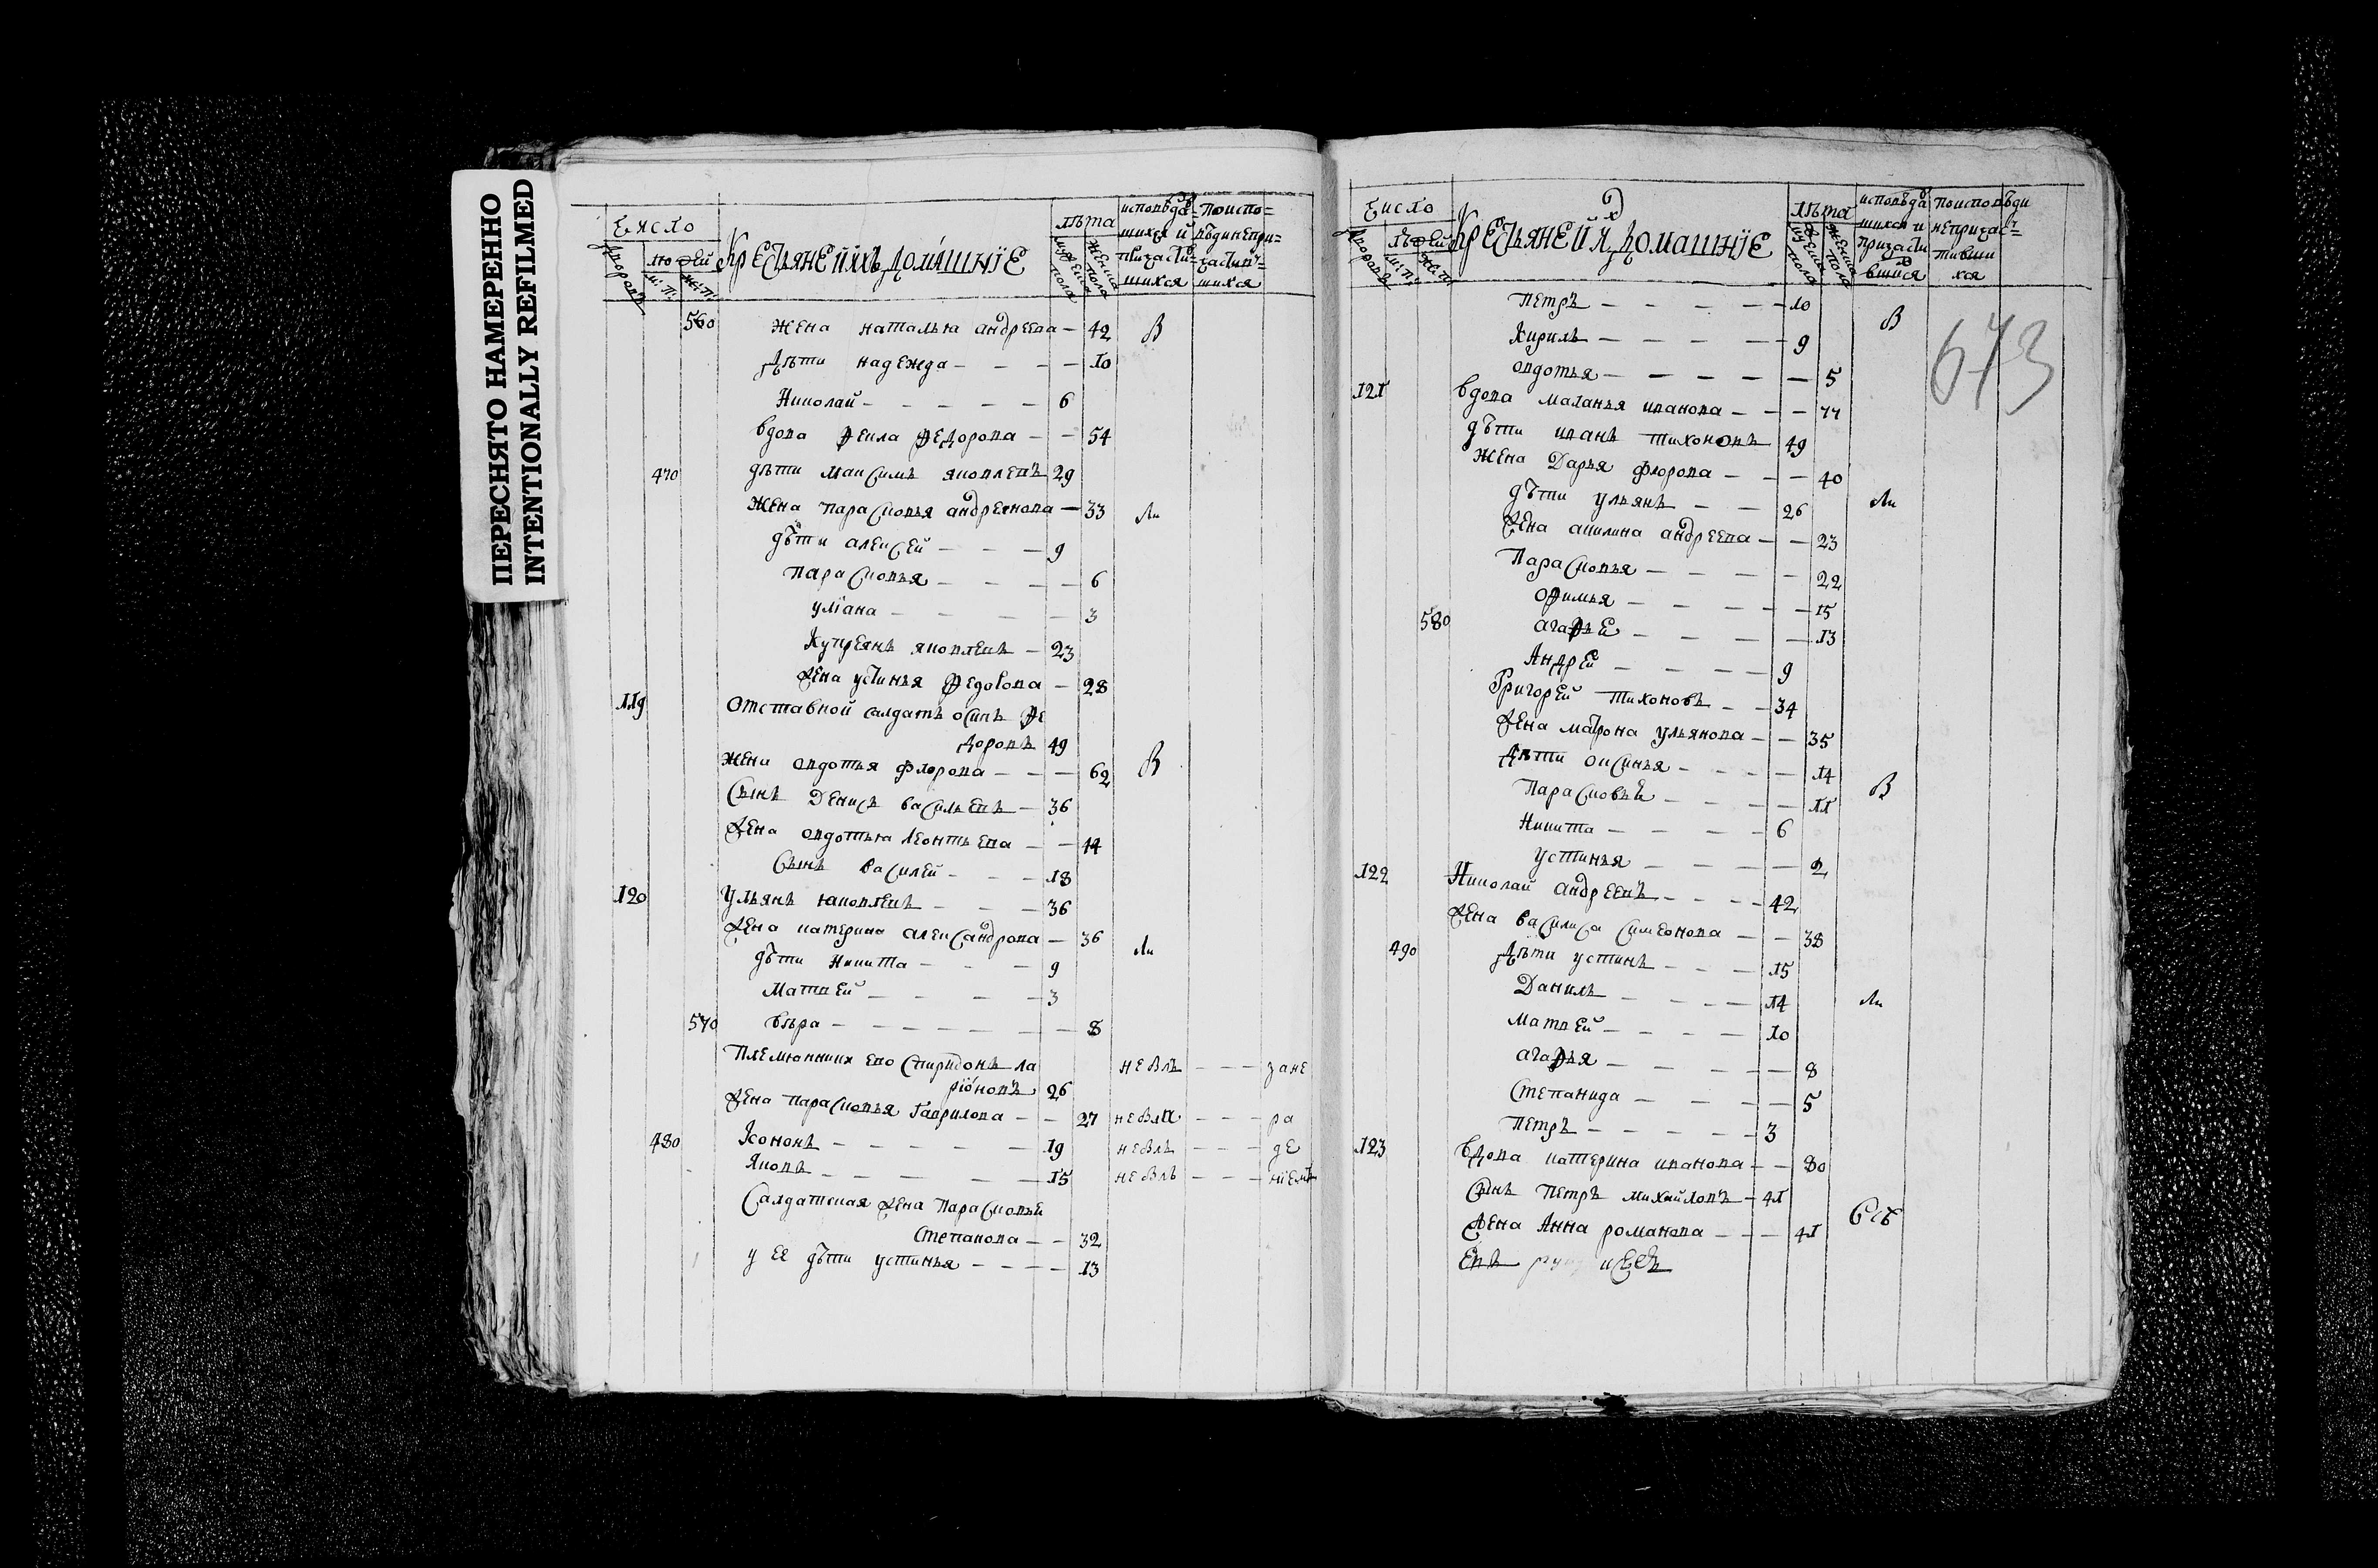 ПЕРЕСНЯТО НАМЕРЕННО
INTENTIONALLY REFILMED
Число
дворовъ
людей
м: п:
ж: п:
Крестьяне й ихъ домашнїе
лѣта
мужеска пола
женска пола
исповѣда=
шихся и
причасти=
шихся
поиспо=
вѣди непри=
частив=
шихся
560 жена наталья андреева — 42 В
дѣти надежда — — — 10
Николай — — — — — 6
вдова Ѳекла Ѳедорова — — 54
470 дѣти максимъ яковлевъ 29
жена парасковья андреянова — 33
дѣти алексей — — — 9
парасковья — — — — 6
улїана — — — — 3
Купреянъ яковлевъ — 23
жена устинья Ѳедорова — 28
119 отставной салдатъ осипъ Ѳе
доровъ 49
жена овдотья флорова — — — 62 В
сынъ Денисъ васильевъ — 36
жена овдотья леонтьева — — 44
сынъ василей — — — 18
120 Ульянъ яковлевъ — — — 36
жена катерина александрова — 36
дѣти Никита — — — 9
Матвей — — — — 3
570 вѣра — — — — — — — 8
племянникъ ево спиридонъ ла невлъ — — — зане
рїоновъ 26
жена парасковья гаврилова — — 27 невла — — — ра
480 Кононъ — — — — — 19 невлъ — — — де
Яковъ — — — — — 15 невлъ — — — нїемъ
Салдатская жена парасковья
степанова — — 32
у ее дѣти устинья — — — — 13
Число
дворовъ
людей
м: п:
ж: п:
Крестьяне й ихъ домашнїе
лѣта
мужеска пола
женска пола
исповѣда
шихся и
причасти
вшихся
поисповѣди
непричас=
тивши
хся
673
Петръ — — — — — 10 В
Кирилъ — — — — — 9
овдотья — — — — — — 5
121 вдова маланья иванова — — — 77
дѣти иванъ тихоновъ 49
жена Дарья флорова — — — 40
дѣти ульянъ — — 26
жена акилина андреева — — 23
Парасковья — — — — 22
офимья — — — — — 15
580 агафье — — — — — 13
Андрей — — — — 9
Григорей тихоновъ — — 34
жена матрона ульянова — — 35
дѣти оксинья — — — — 14
Парасковье — — — — 11 В
Никита — — — — 6
устинья — — — — — 2
122 Николай андреевъ — — — — 42
жена василиса симеонова — — 38
490 дѣти устинъ — — — 15
Данилъ — — — — 14
матвей — — — — 10
агафья — — — — — 8
степанида — — — — 5
петръ — — — — — 3
123 вдова катерина иванова — — 80
сынъ петръ михайловъ — 41
жена Анна романова — — — 41